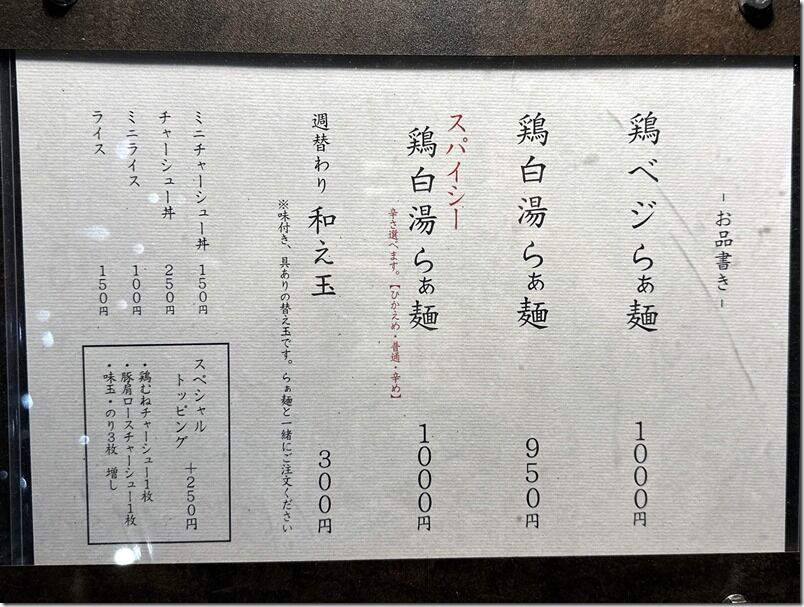 - お品書き -
鶏ベジらぁ麺 1000円
鶏白湯らぁ麺 950円
スパイシー
鶏白湯らぁ麺 1000円
辛さ選べます。【ひかえめ・普通・辛め】
週替わり 和え玉 300円
※味付き、具ありの替え玉です。らぁ麺と一緒にご注文ください
ミニチャーシュー丼 150円
チャーシュー丼 250円
ミニライス 100円
ライス 150円
スペシャル
トッピング +250円
・鶏むねチャーシュー1枚
・豚肩ロースチャーシュー1枚
・味玉・のり3枚 増し